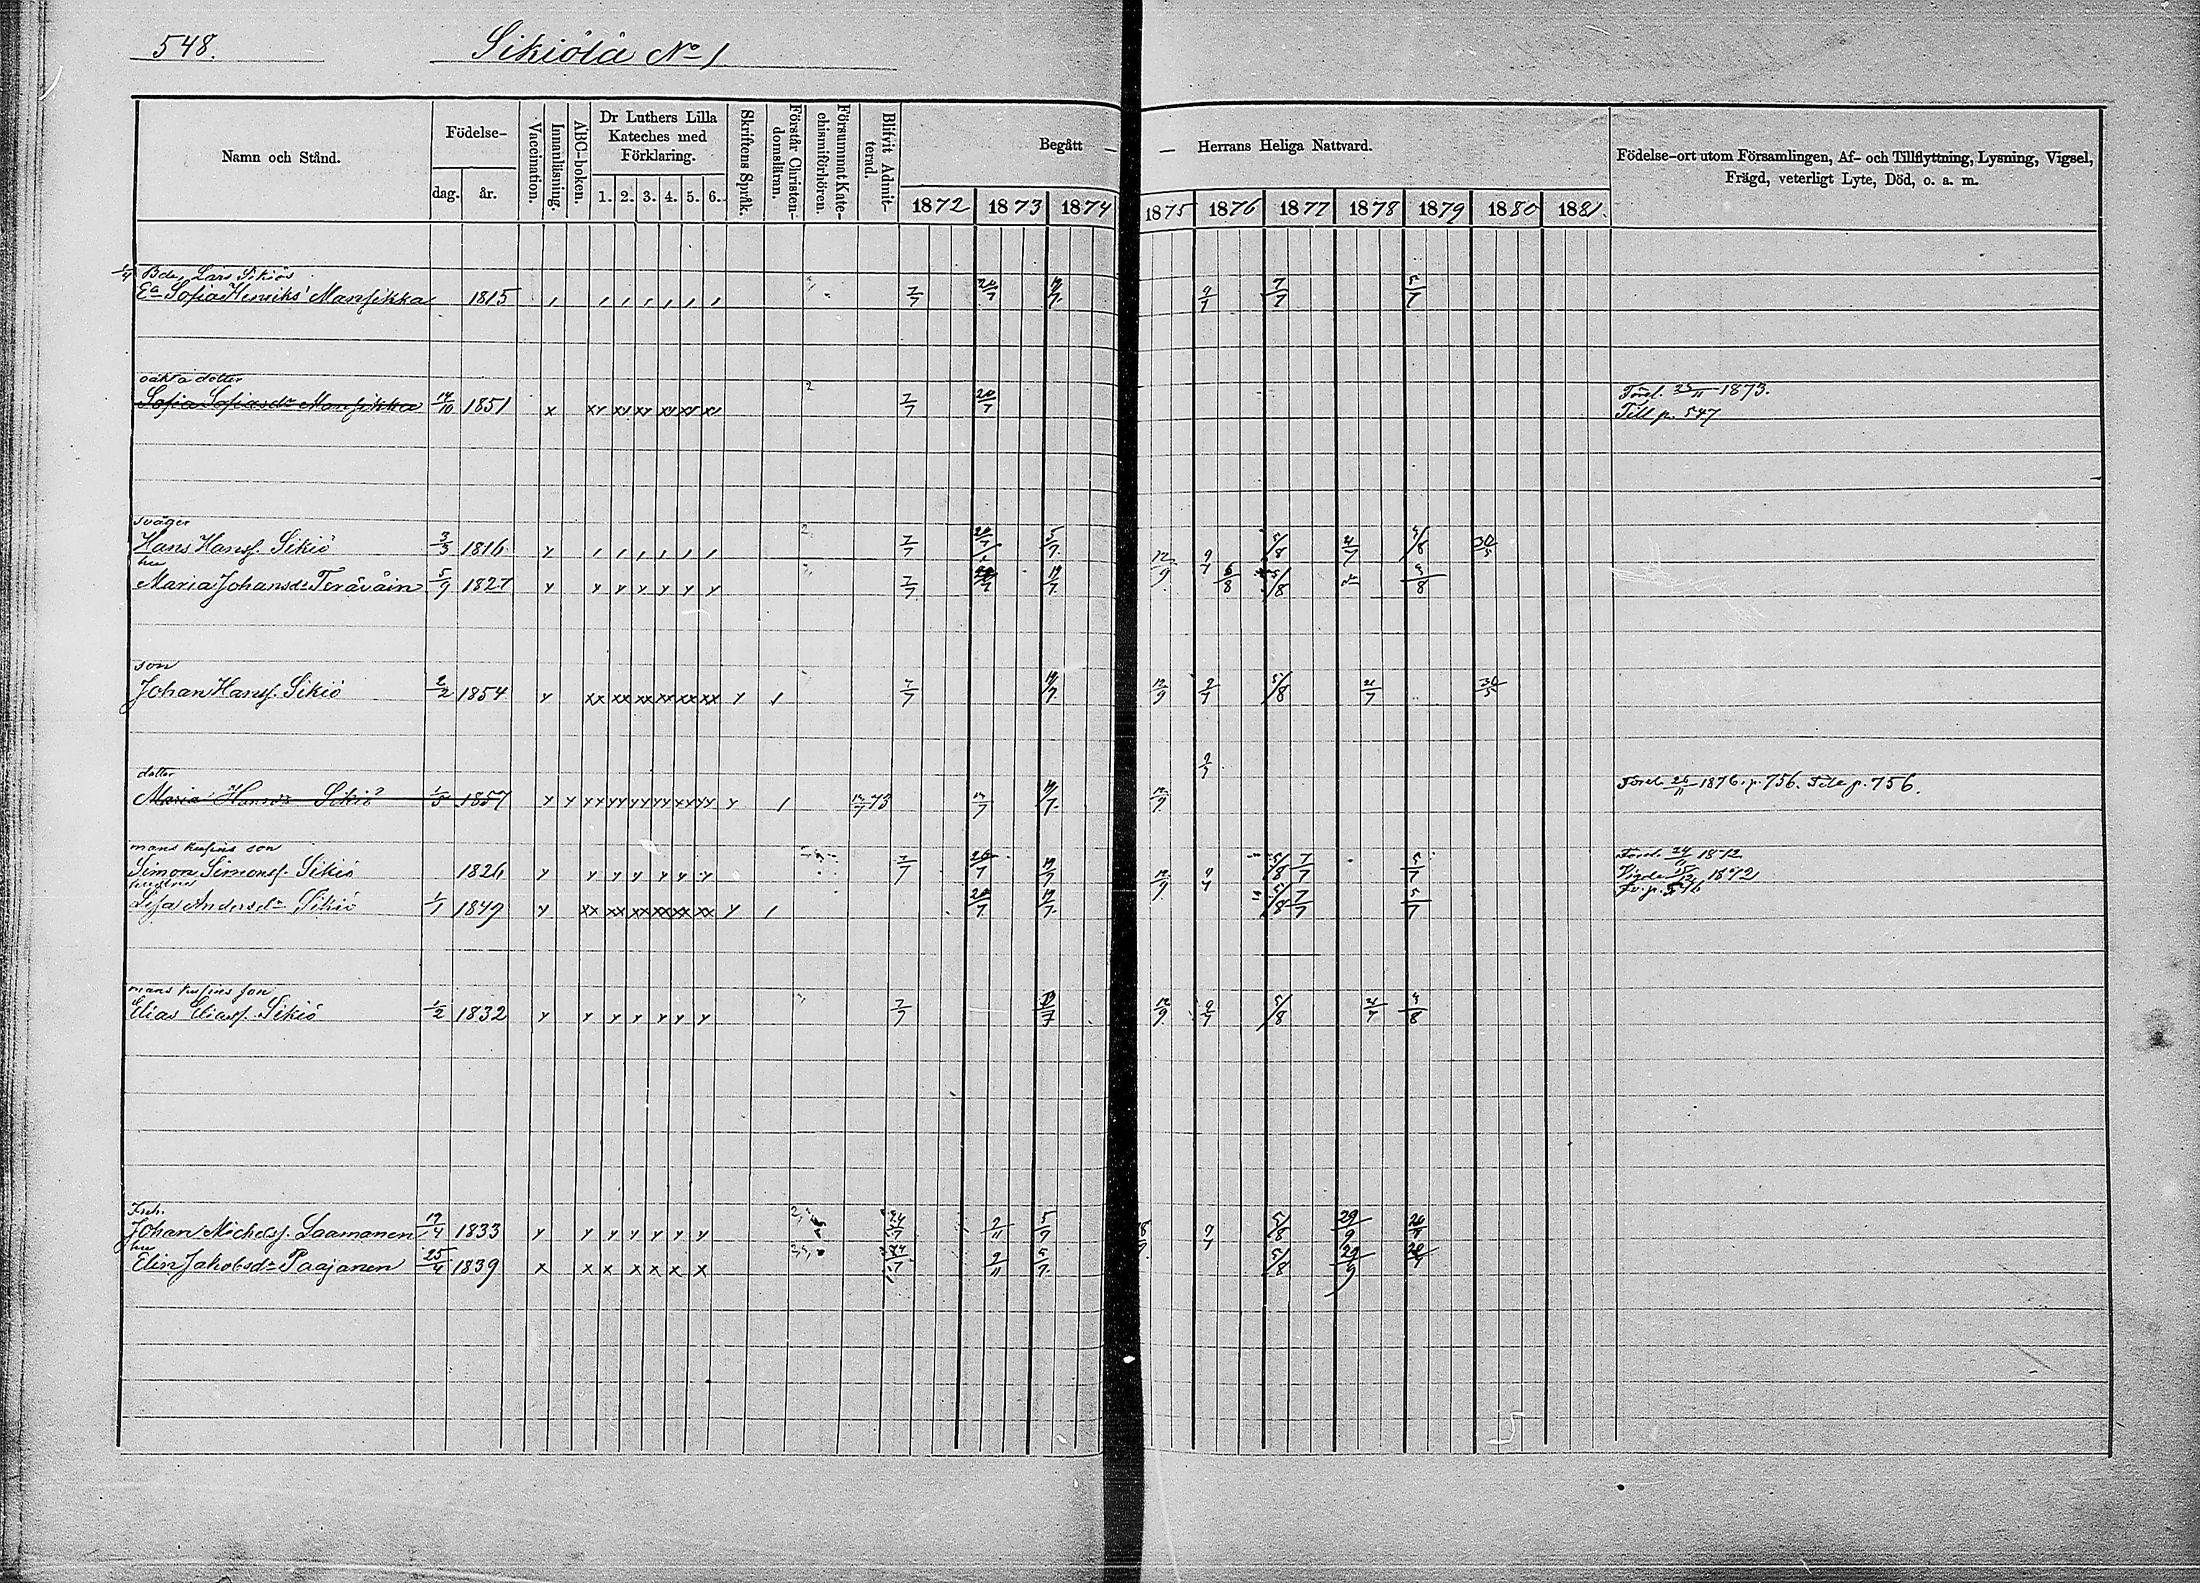 548.
Sikiölä No 1
Namn och Stånd.
Födelse-
dag. år.
Vaccination.
Innanläsning.
ABC-boken.
Dr Luthers Lilla
Kateches med
Förklaring.
1. 2. 3. 4. 5. 6.
Skriftens Språk.
Förstår Christen-
domsläran.
Försummat Kate-
chismiförhören.
Blifvit Admit-
terad.
Begått —
— Herrans Heliga Nattvard.
1872 1873 1874 1875 1876 1877 1878 1879 1880 1881.
Födelse-ort utom Församlingen, Af- och Tillflyttning, Lysning, Vigsel,
Frägd, veterligt Lyte, Död, o. a. m.
1/4 Bde, Lars Sikiös
Ea Sofia Henriks Mansikka 1815 7/7 20/7 19/7 9/7 7/7 5/7
oäkta dotter
Sofia Sofiasdr Mansikka 14/10 1851 x xx xx xx xx xx xx 2 7/7 20/7 Törel. 25/11 1873.
Till p. 547
svåger
Hans Hanss. Sikiö 3/3 1816 7/7 20/7 5/7 12/9 9/7 5/8 21/7 4/8 30/5
hu
Maria Johansdr Teräväin 5/9 1827 7/7 19/7 6/8 5/8 4/8
son
Johan Hanss. Sikiö 2/2 1854 x xx xx xx xx xx xx x 7/7 19/7 12/9 9/7 5/8 21/7 30/5
9/7
dotter
Maria Hansdr Sikiö 1/5 1857 13/7 73 13/7 19/7 12/9 Törel. 26/11 1876. p. 756. Till p. 756.
mans kusins son
Simon Simonss. Sikiö 1826 7/7 20/7 19/7 12/9 9/7 5/8 7/7 5/7 Törel. 24/11 1872
Vigde 1872
hustru
Lisa Andersdr Sikiö 1/1 1849 x xx xx xx xx xx xx x 20/7 19/7 5/8 7/7 5/7
mans kusins son
Elias Eliass. Sikiö 1/2 1832 7/7 19/7 12/9 9/7 5/8 21/7 4/8
Inh.
Johan Michelss. Laamanen 19/4 1833 2/11 5/7 9/7 5/8 29/9 20/7
hu
Elin Jakobsdr Paajanen 25/4 1839 x x x x x x x 2/11 5/7 5/8 29/9 20/7